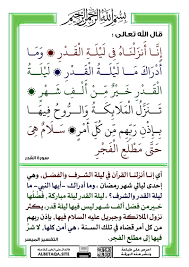 بسم الله الرحمن الرحيم
قال الله تعالى :
إِنَّا أَنزَلْنَاهُ فِي لَيْلَةِ الْقَدْرِ ۝ وَمَا
أَدْرَاكَ مَا لَيْلَةُ الْقَدْرِ ۝ لَيْلَةُ
الْقَدْرِ خَيْرٌ مِّنْ أَلْفِ شَهْرٍ ۝
تَنَزَّلُ الْمَلَائِكَةُ وَالرُّوحُ فِيهَا
بِإِذْنِ رَبِّهِم مِّن كُلِّ أَمْرٍ ۝ سَلَامٌ هِيَ
حَتَّى مَطْلَعِ الْفَجْرِ
سورة القدر
إنا أنزلنا القرآن في ليلة الشرف والفضل، وهي
إحدى ليالي شهر رمضان. وما أدراك -أيها النبي- ما
ليلة القدر والشرف؟ ليلة القدر ليلة مباركة، فضلها
خير من فضل ألف شهر ليس فيها ليلة قدر. يكثر
نزول الملائكة وجبريل عليه السلام فيها، بإذن ربهم
من كل أمر قضاه في تلك السنة. هي أمن كلها، لا شر
فيها إلى مطلع الفجر.
التفسير الميسر
ALBETAQA.SITE